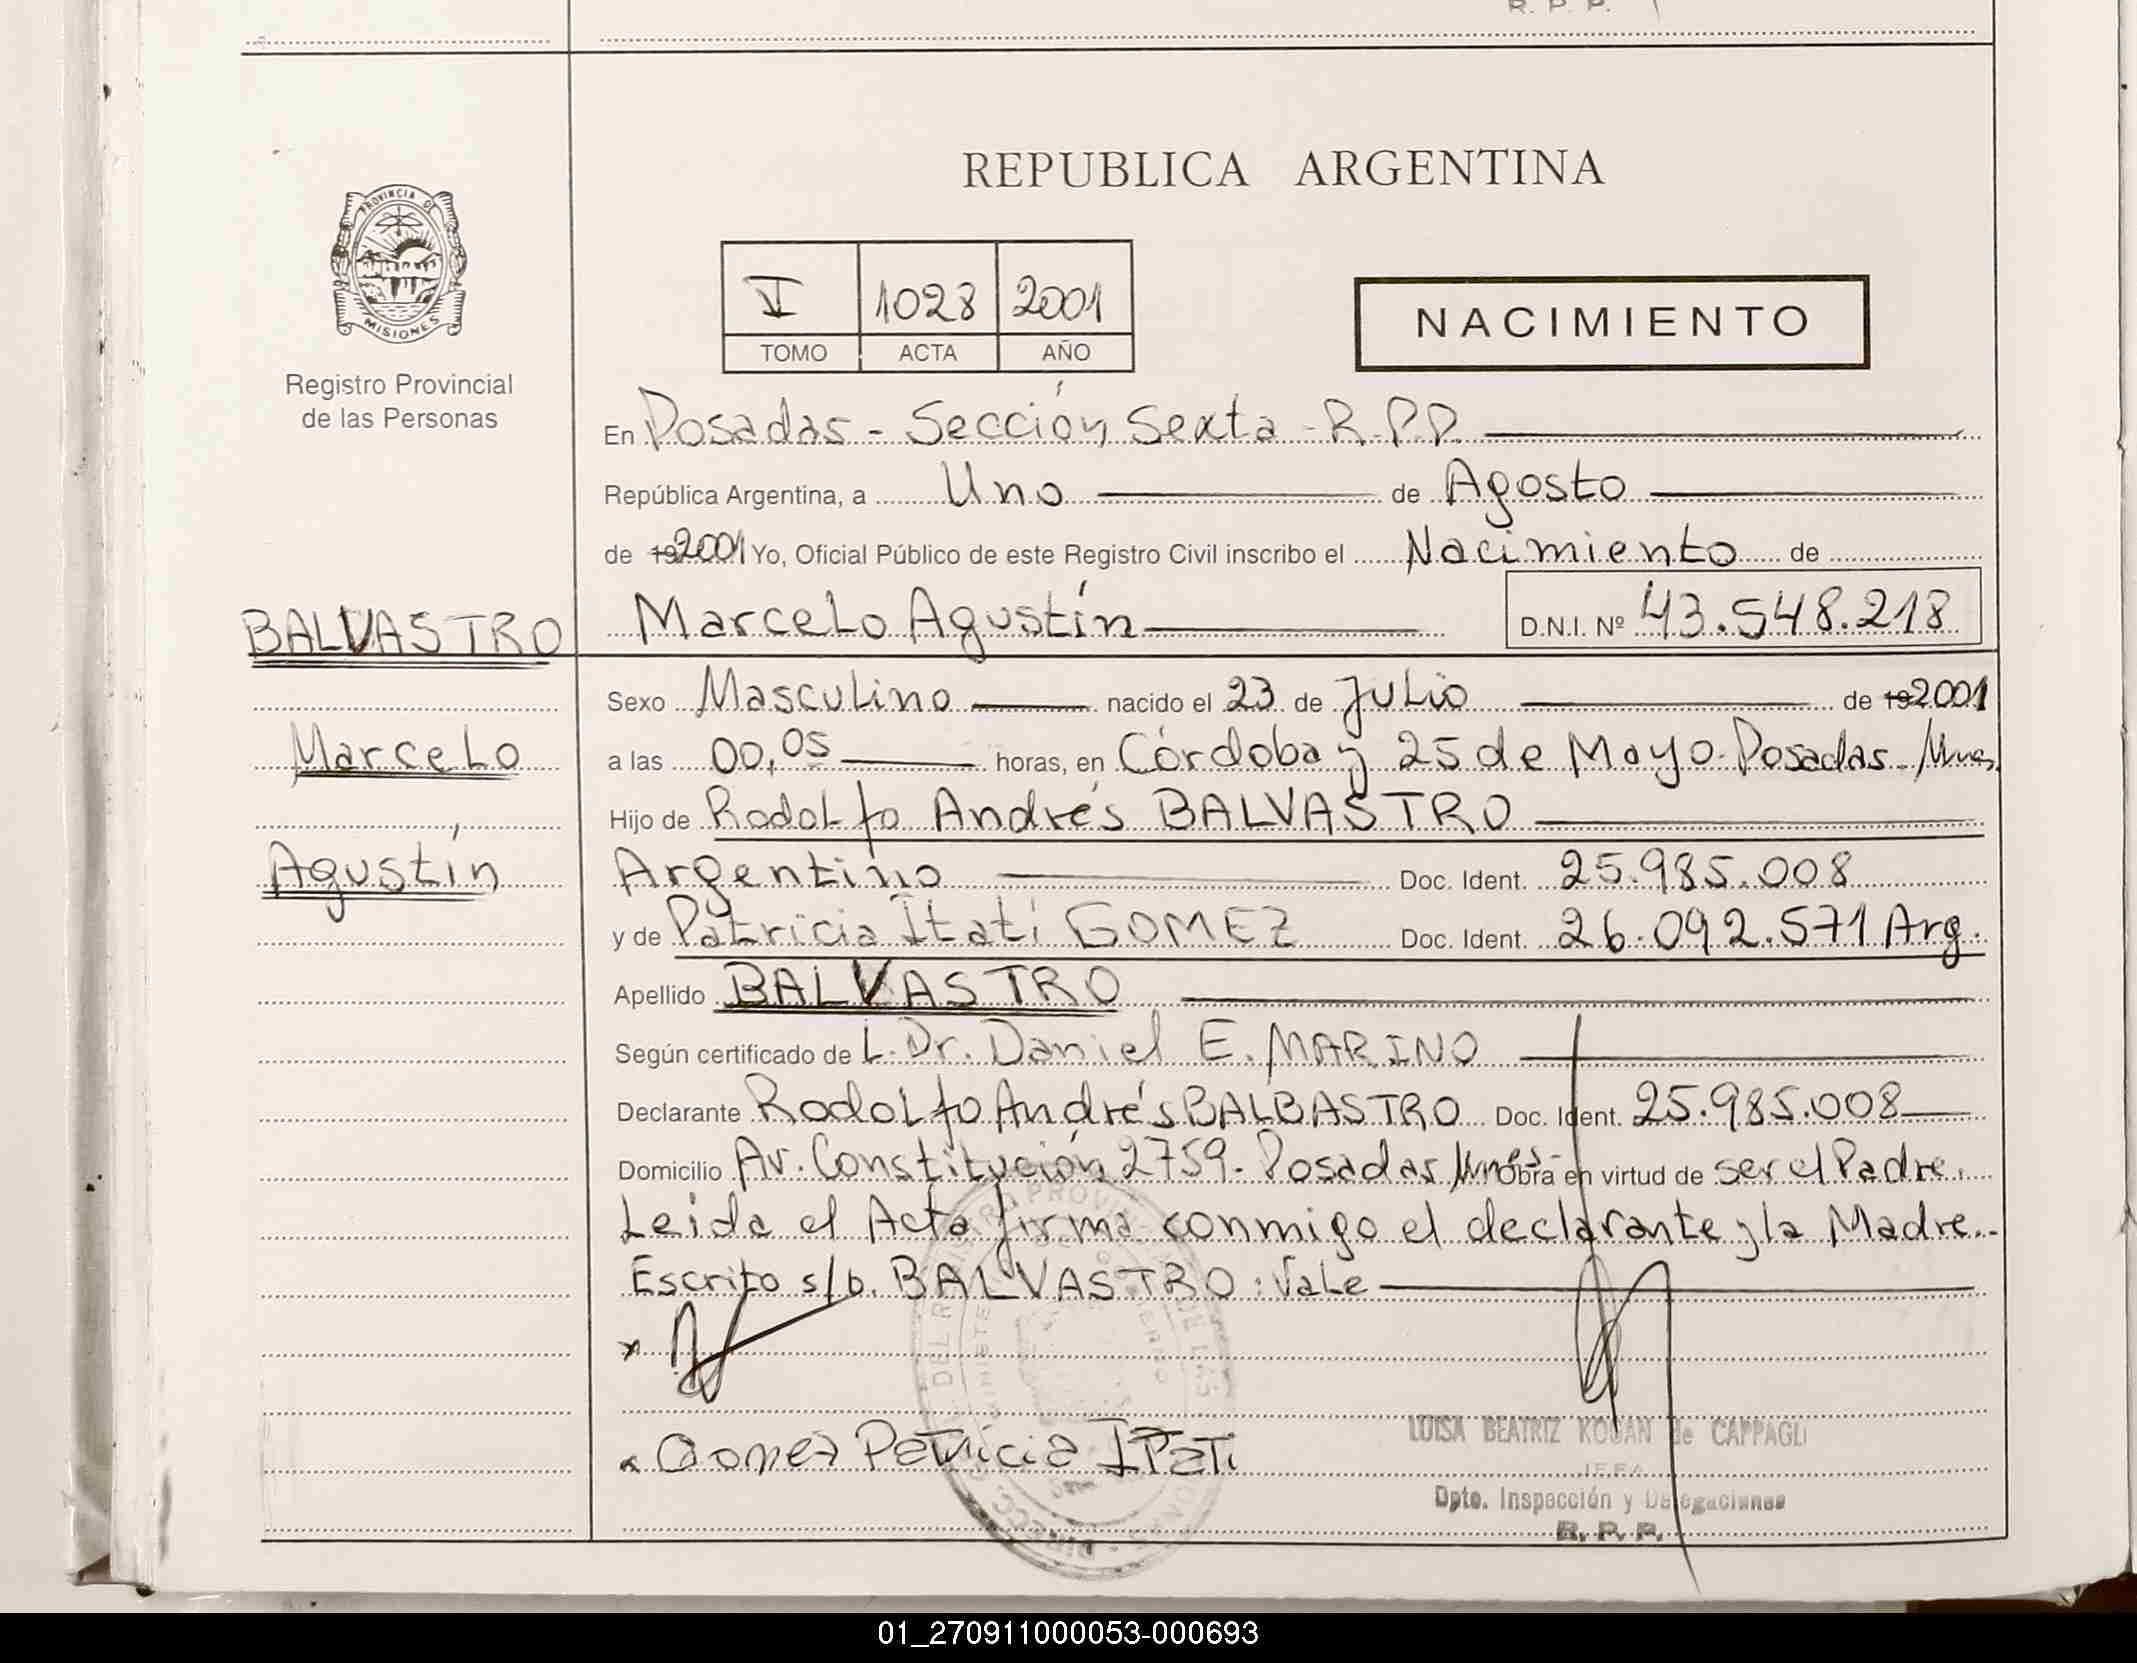 R. P. P.
REPUBLICA ARGENTINA
PROVINCIA DE
MISIONES
Registro Provincial
de las Personas
1028 2001
TOMO ACTA AÑO
NACIMIENTO
En Posadas - Sección Sexta - R.P.P.
República Argentina, a Uno de Agosto
de 192001 Yo, Oficial Público de este Registro Civil inscribo el Nacimiento de
BALVASTRO
Marcelo
Agustín
Marcelo Agustín D.N.I. Nº 43.548.218
Sexo Masculino nacido el 23 de Julio de 192001
a las 00,05 horas, en Córdoba y 25 de Mayo - Posadas - Mnes.
Hijo de Rodolfo Andrés BALVASTRO
Argentino Doc. Ident. 25.985.008
y de Patricia Itatí GOMEZ Doc. Ident. 26.092.571 Arg.
Apellido BALVASTRO
Según certificado de L. Dr. Daniel E. MARINO
Declarante Rodolfo Andrés BALBASTRO Doc. Ident. 25.985.008
Domicilio Av. Constitución 2759 - Posadas Mnes - Obra en virtud de ser el Padre.
Leida el Acta firma conmigo el declarante y la Madre.-
Escrito s/b. BALVASTRO: Vale
x
x Gomez Patricia Itati
LUISA BEATRIZ KOUAN de CAPPAGLI
JEFA
Dpto. Inspección y Delegaciones
R. P. P.
01_270911000053-000693